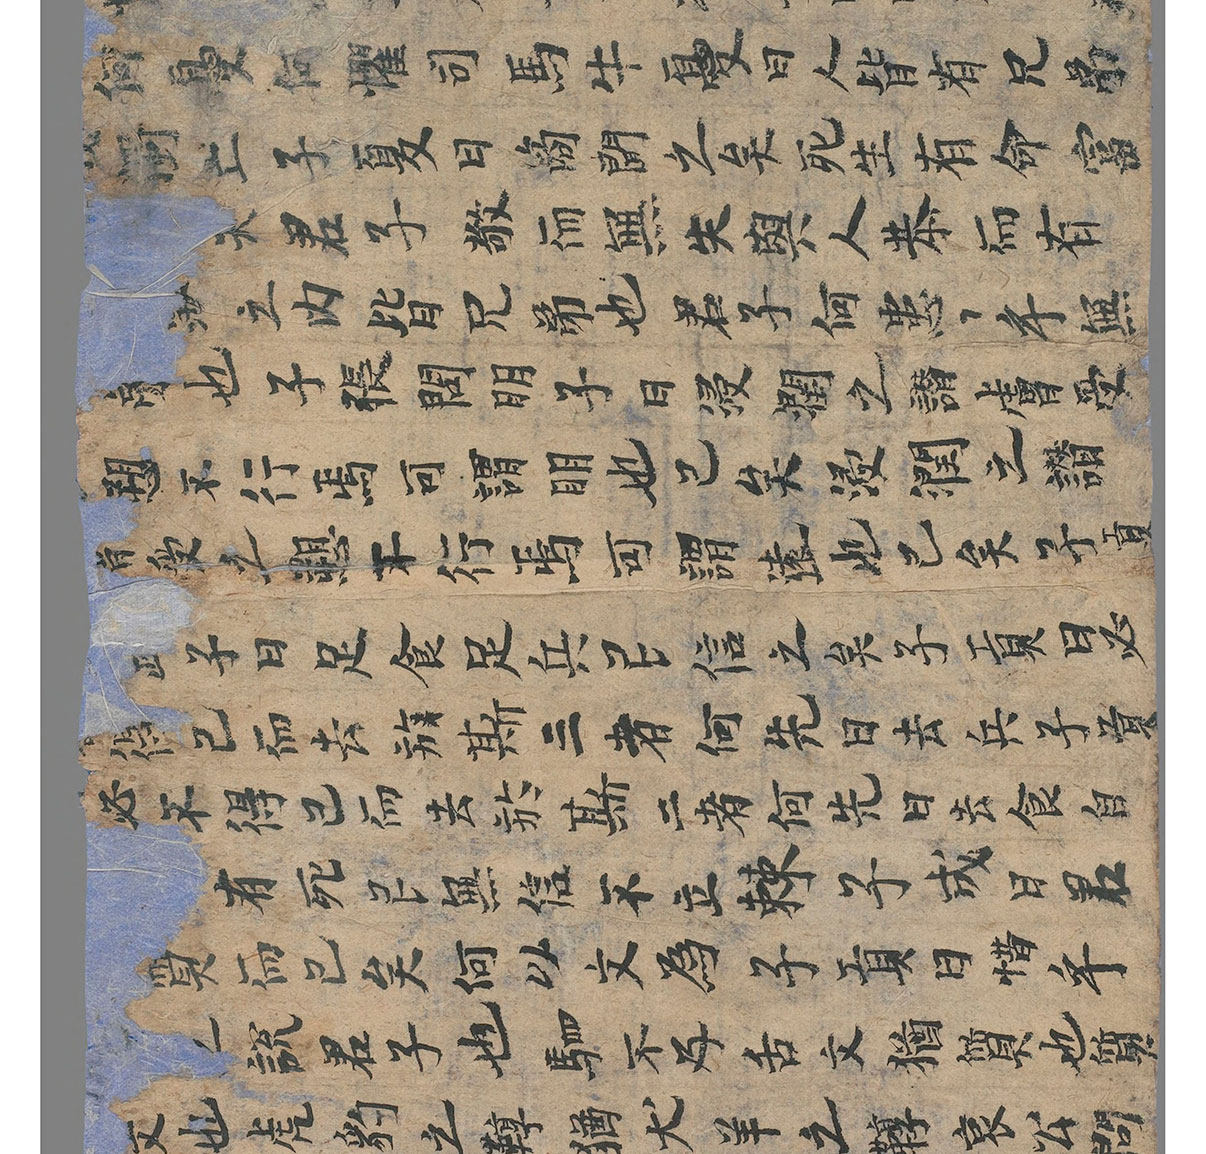 何憂何懼司馬牛憂曰人皆有兄弟
獨亡子夏曰商聞之矣死生有命富
天君子敬而無失與人恭而有
海之内皆兄弟也君子何患乎無
弟也子張問明子曰浸潤之譖膚受
愬不行焉可謂明也已矣浸潤之譖
膚受之愬不行焉可謂遠也已矣子貢
子曰足食足兵民信之矣子貢曰必
得已而去於斯三者何先曰去兵子貢
必不得已而去於斯二者何先曰去食自
有死民無信不立棘子成曰君
質而已矣何以文為子貢曰惜乎
之說君子也駟不及舌文猶質也質
文也虎豹之鞟猶犬羊之鞟哀公問